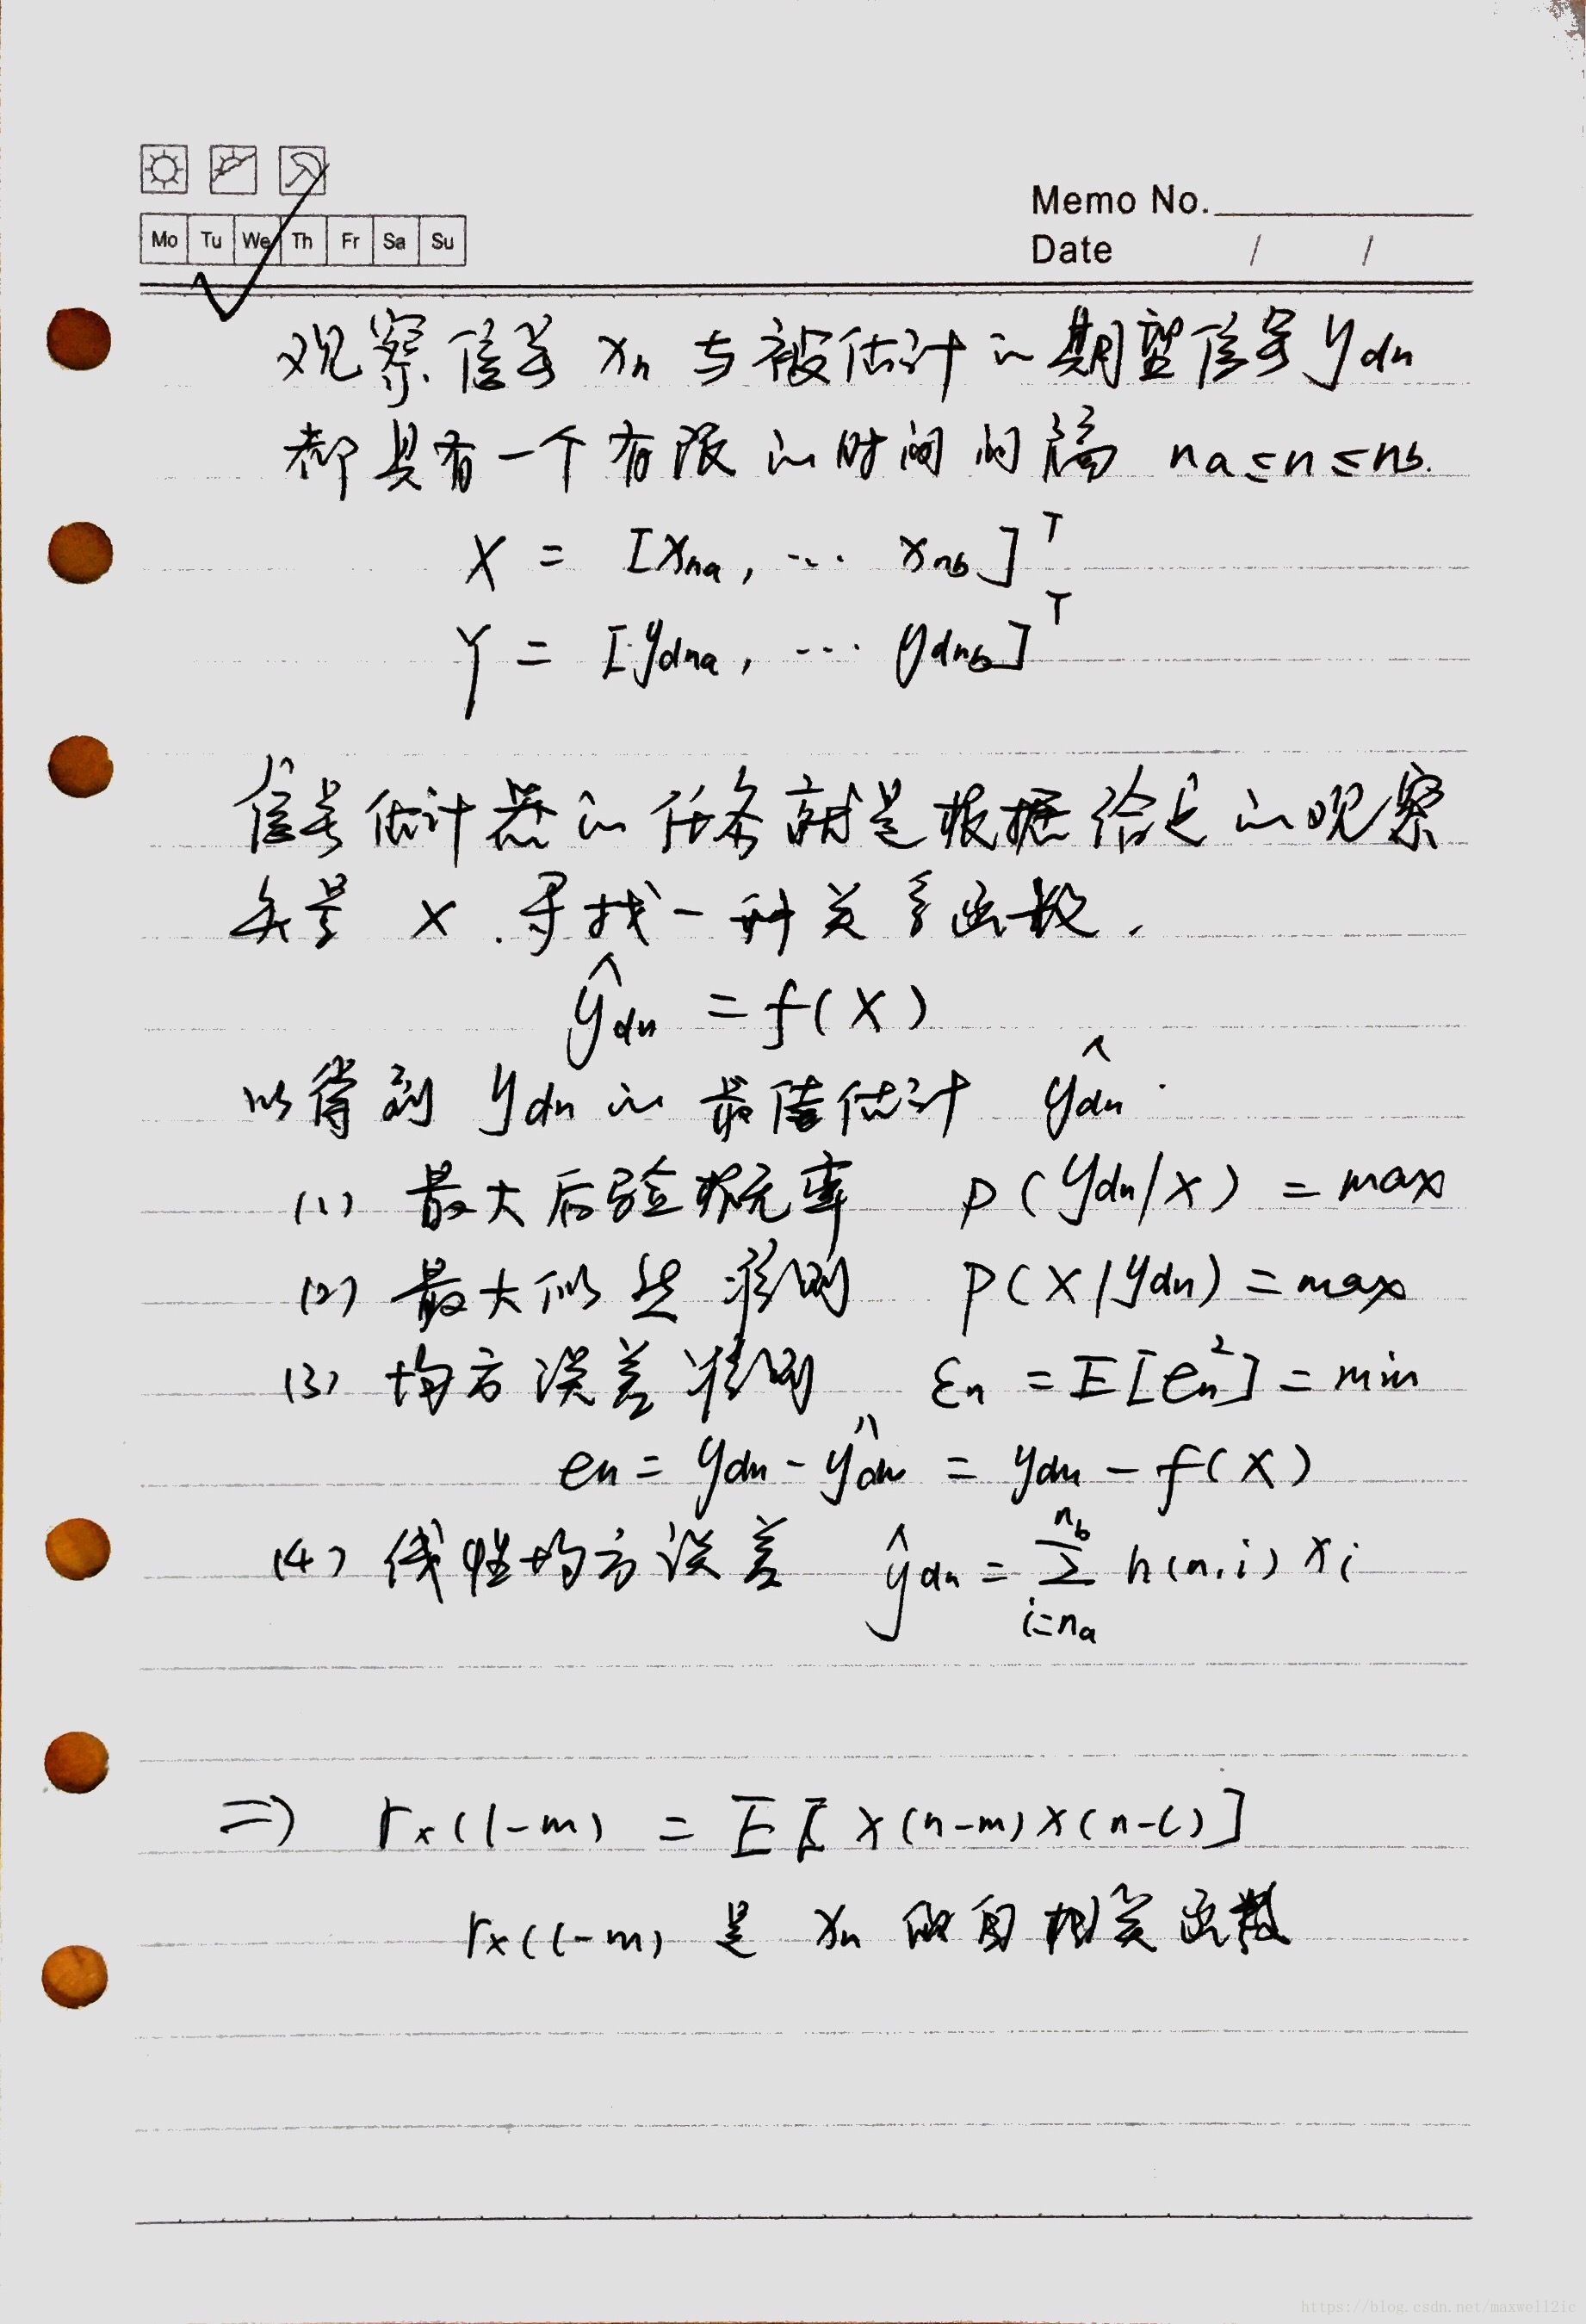 Memo No.
Mo Tu We Th Fr Sa Su
Date / /
观察信号 xn 与被估计的期望信号 ydn
都具有一个有限的时间间隔 na≤n≤nb.
X = [xna, ... xnb]^T
Y = [ydna, ... ydnb]^T
信号估计器的任务就是根据给定的观察
矢量 X. 寻找一种关系函数.
ŷdn = f(X)
以得到 ydn 的最佳估计 ŷdn.
(1) 最大后验概率 P(ydn/X) = max
(2) 最大似然准则 P(X/ydn) = max
(3) 均方误差准则 εn = E[en²] = min
en = ydn - ŷdn = ydn - f(X)
(4) 线性均方误差 ŷdn = Σ_{i=na}^{nb} h(n,i) xi
⇒ rx(l-m) = E[x(n-m)x(n-l)]
rx(l-m) 是 xn 的自相关函数
https://blog.csdn.net/maxwell2ic